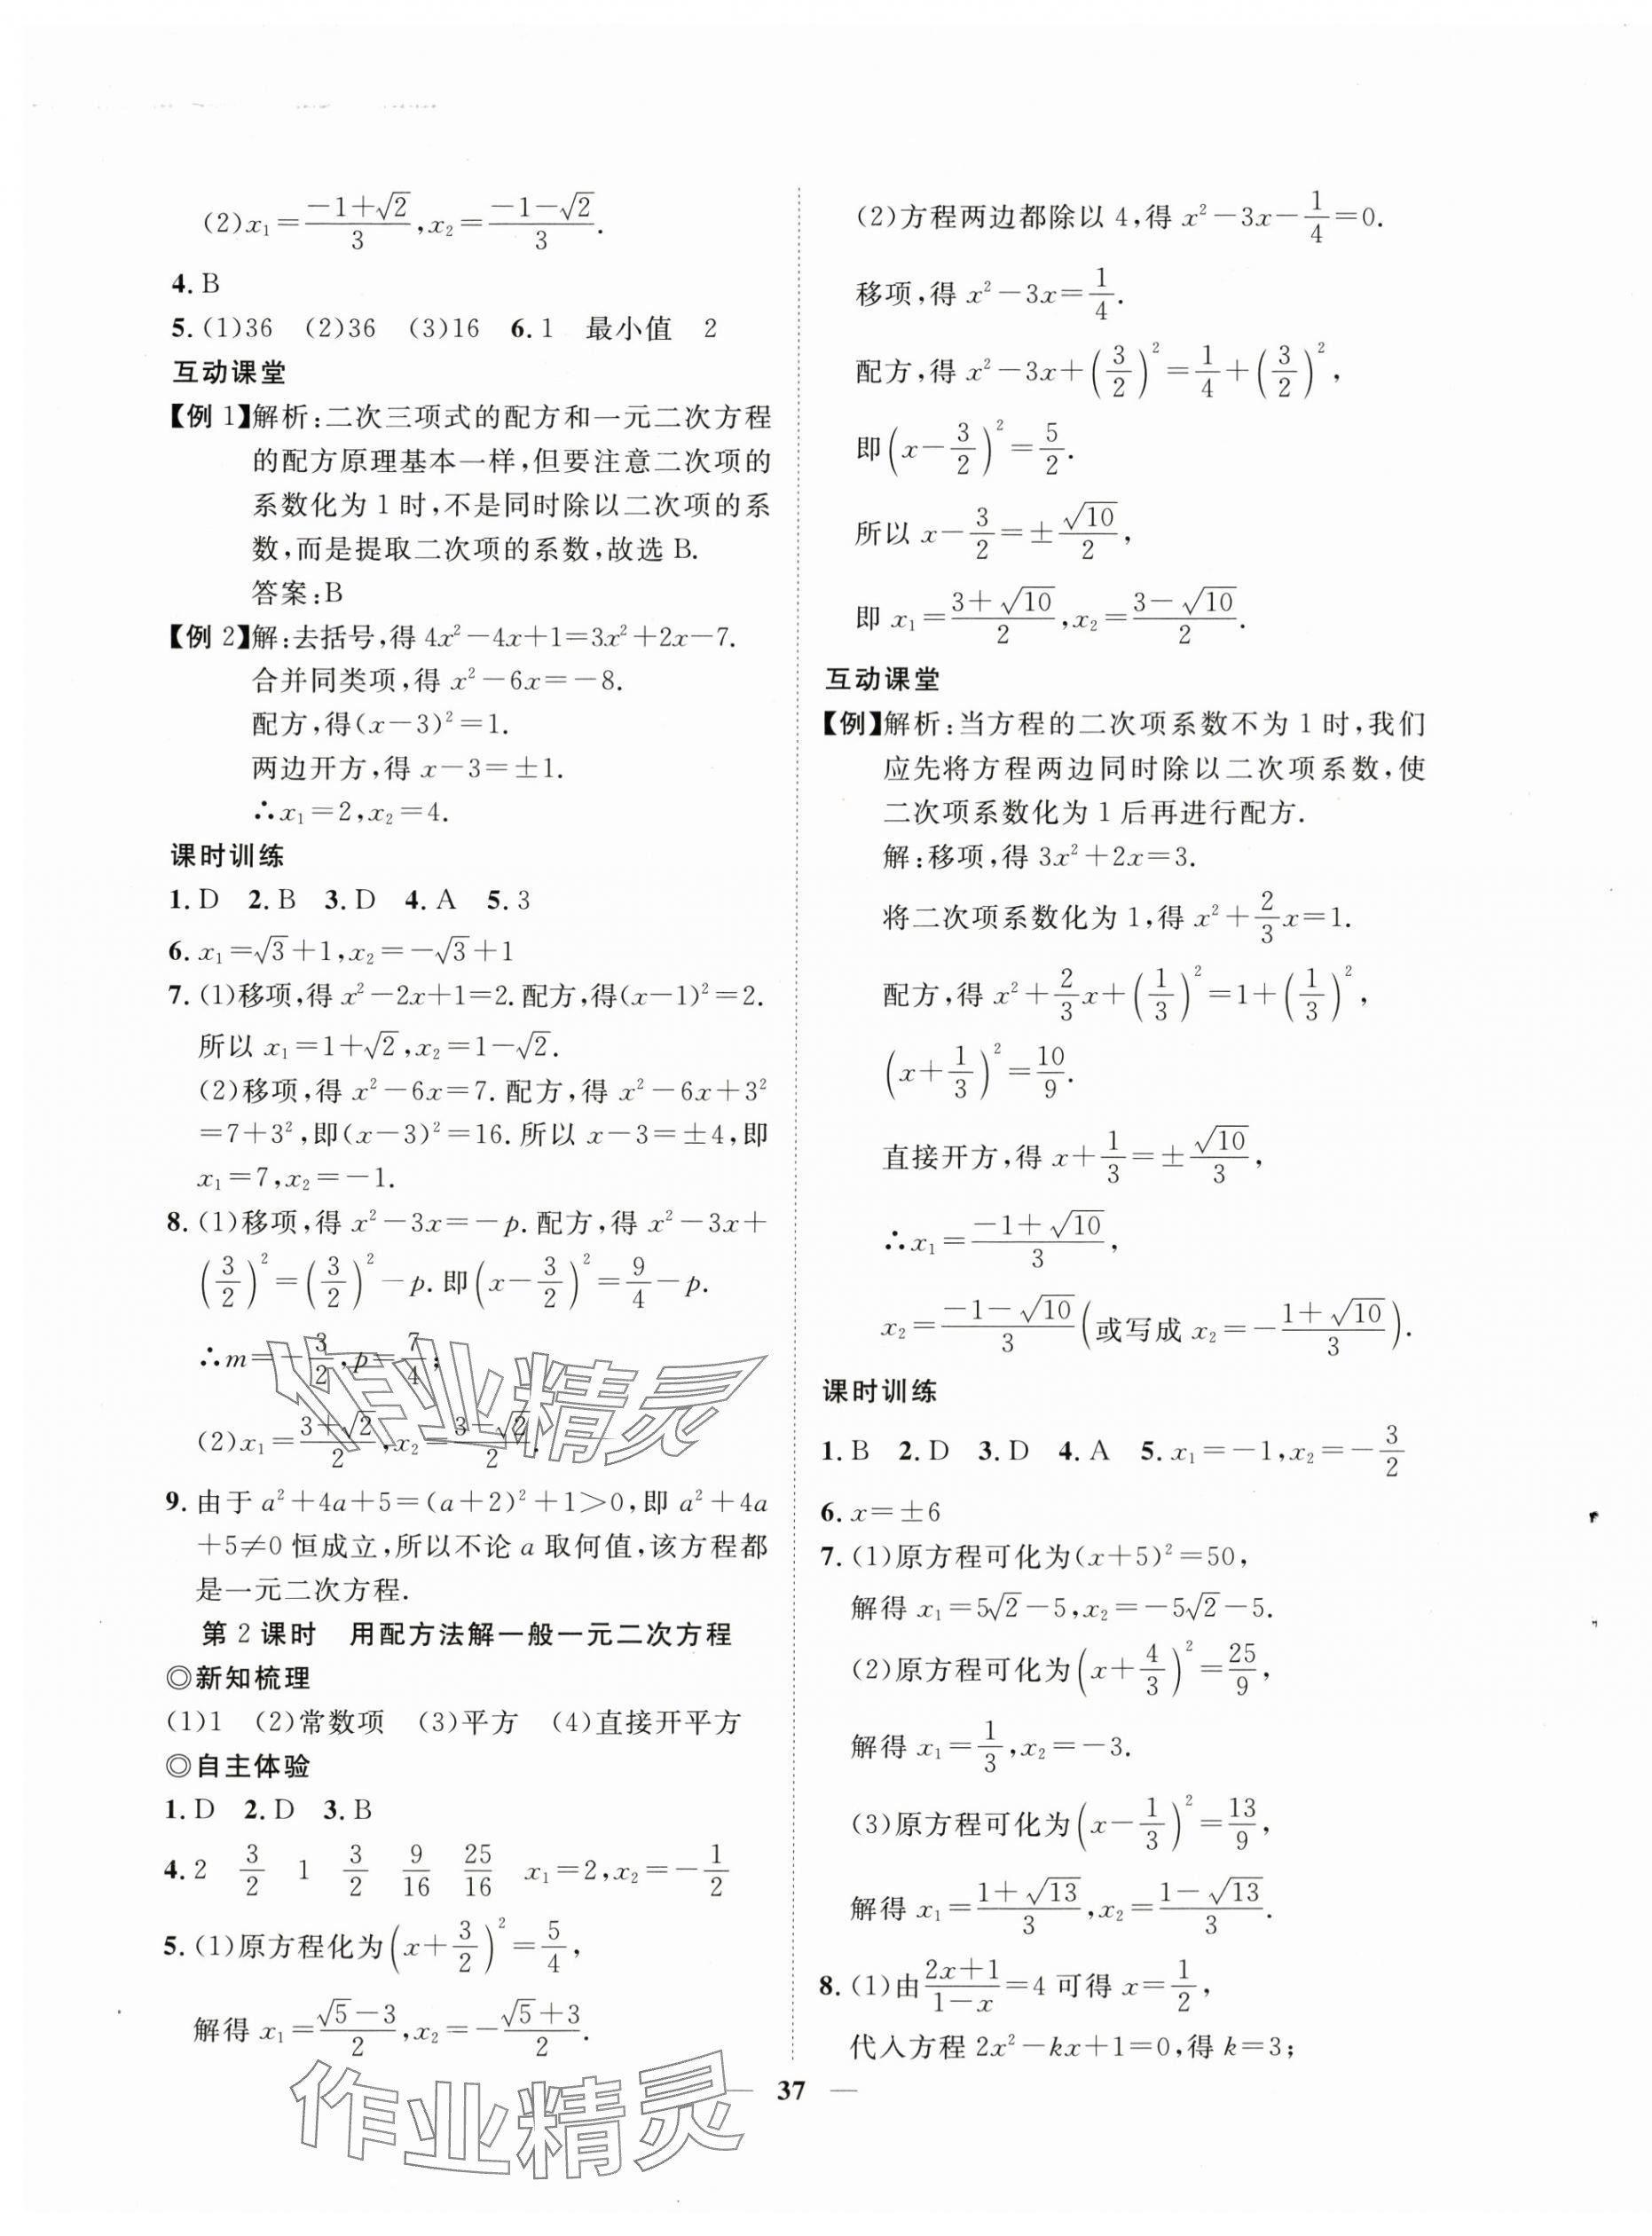 (2)x₁=(-1+√2)/3,x₂=(-1-√2)/3.
4.B
5.(1)36 (2)36 (3)16 6.1 最小值 2
互动课堂
【例1】解析:二次三项式的配方和一元二次方程
的配方原理基本一样,但要注意二次项的
系数化为1时,不是同时除以二次项的系
数,而是提取二次项的系数,故选B.
答案:B
【例2】解:去括号,得4x²-4x+1=3x²+2x-7.
合并同类项,得x²-6x=-8.
配方,得(x-3)²=1.
两边开方,得x-3=±1.
∴x₁=2,x₂=4.
课时训练
1.D 2.B 3.D 4.A 5.3
6.x₁=√3+1,x₂=-√3+1
7.(1)移项,得x²-2x+1=2.配方,得(x-1)²=2.
所以x₁=1+√2,x₂=1-√2.
(2)移项,得x²-6x=7.配方,得x²-6x+3²
=7+3²,即(x-3)²=16.所以x-3=±4,即
x₁=7,x₂=-1.
8.(1)移项,得x²-3x=-p.配方,得x²-3x+
(3/2)²=(3/2)²-p.即(x-3/2)²=9/4-p.
∴m=-3/2,p=7/4;
(2)x₁=(3+√2)/2,x₂=(3-√2)/2.
9.由于a²+4a+5=(a+2)²+1>0,即a²+4a
+5≠0恒成立,所以不论a取何值,该方程都
是一元二次方程.
第2课时 用配方法解一般一元二次方程
◎新知梳理
(1)1 (2)常数项 (3)平方 (4)直接开平方
◎自主体验
1.D 2.D 3.B
4.2 3/2 1 3/2 9/16 25/16 x₁=2,x₂=-1/2
5.(1)原方程化为(x+3/2)²=5/4,
解得x₁=(√5-3)/2,x₂=-(√5+3)/2.
(2)方程两边都除以4,得x²-3x-1/4=0.
移项,得x²-3x=1/4.
配方,得x²-3x+(3/2)²=1/4+(3/2)²,
即(x-3/2)²=5/2.
所以x-3/2=±√10/2,
即x₁=(3+√10)/2,x₂=(3-√10)/2.
互动课堂
【例】解析:当方程的二次项系数不为1时,我们
应先将方程两边同时除以二次项系数,使
二次项系数化为1后再进行配方.
解:移项,得3x²+2x=3.
将二次项系数化为1,得x²+2/3x=1.
配方,得x²+2/3x+(1/3)²=1+(1/3)²,
(x+1/3)²=10/9.
直接开方,得x+1/3=±√10/3,
∴x₁=(-1+√10)/3,
x₂=(-1-√10)/3(或写成x₂=-(1+√10)/3).
课时训练
1.B 2.D 3.D 4.A 5.x₁=-1,x₂=-3/2
6.x=±6
7.(1)原方程可化为(x+5)²=50,
解得x₁=5√2-5,x₂=-5√2-5.
(2)原方程可化为(x+4/3)²=25/9,
解得x₁=1/3,x₂=-3.
(3)原方程可化为(x-1/3)²=13/9,
解得x₁=(1+√13)/3,x₂=(1-√13)/3.
8.(1)由(2x+1)/(1-x)=4可得x=1/2,
代入方程2x²-kx+1=0,得k=3;
— 37 —
作业精灵
作业精灵